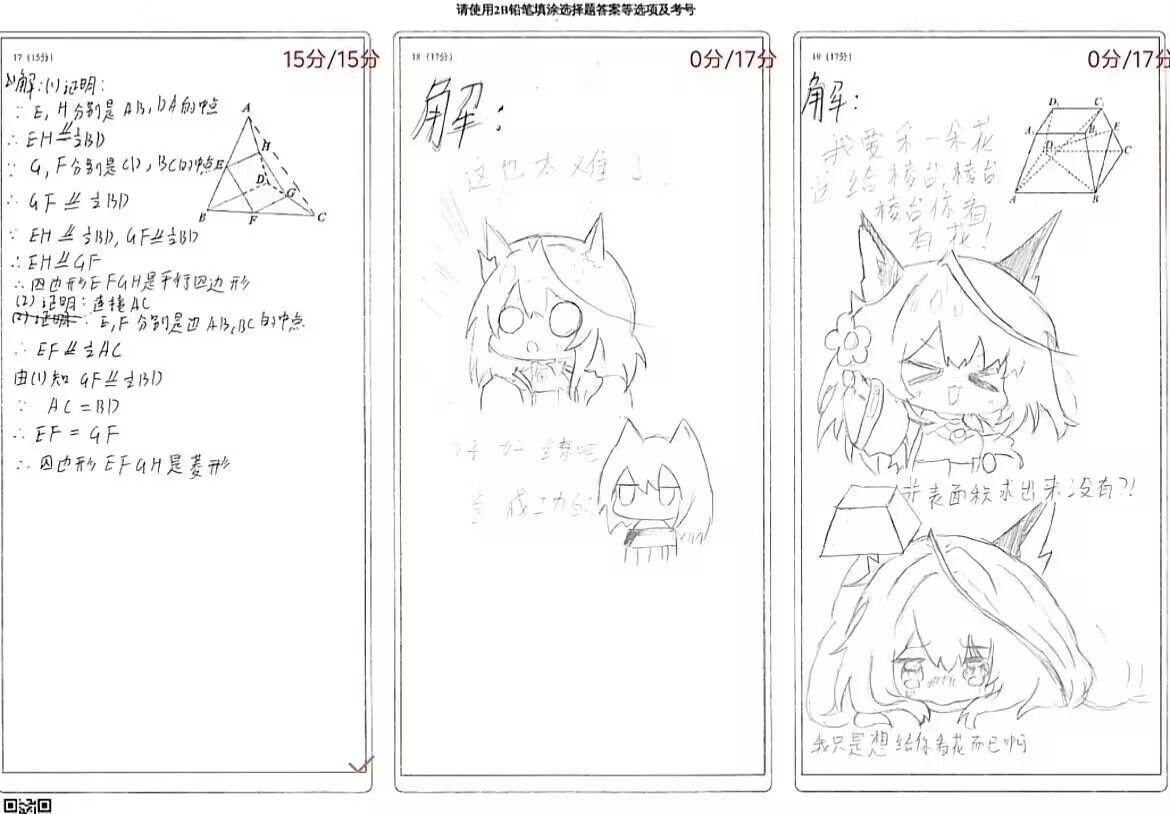 请使用2B铅笔填涂选择题答案等选项及考号
17 (15分)
15分/15分
解:(1)证明:
∵ E, H 分别是 AB, DA 的中点
∴ EH ⫽ ½BD
∵ G, F 分别是 CD, BC 的中点
∴ GF ⫽ ½BD
∵ EH ⫽ ½BD, GF ⫽ ½BD
∴ EH ⫽ GF
∴ 四边形 EFGH 是平行四边形
(2) 证明: 连接 AC
(2) 证明: ∵ E, F 分别是边 AB, BC 的中点
∴ EF ⫽ ½AC
由(1)知 GF ⫽ ½BD
∵ AC = BD
∴ EF = GF
∴ 四边形 EFGH 是菱形
A
H
E
D
G
B
F
C
18 (17分)
0分/17分
解:
这也太难了
成功
19 (17分)
0分/17分
解:
我要采一朵花
送给棱台,棱台
棱台你看
有花!
D₁
C₁
A₁
B₁
E
D
C
A
B
表面积求出来没有?!
我只是想给你看花而已啊